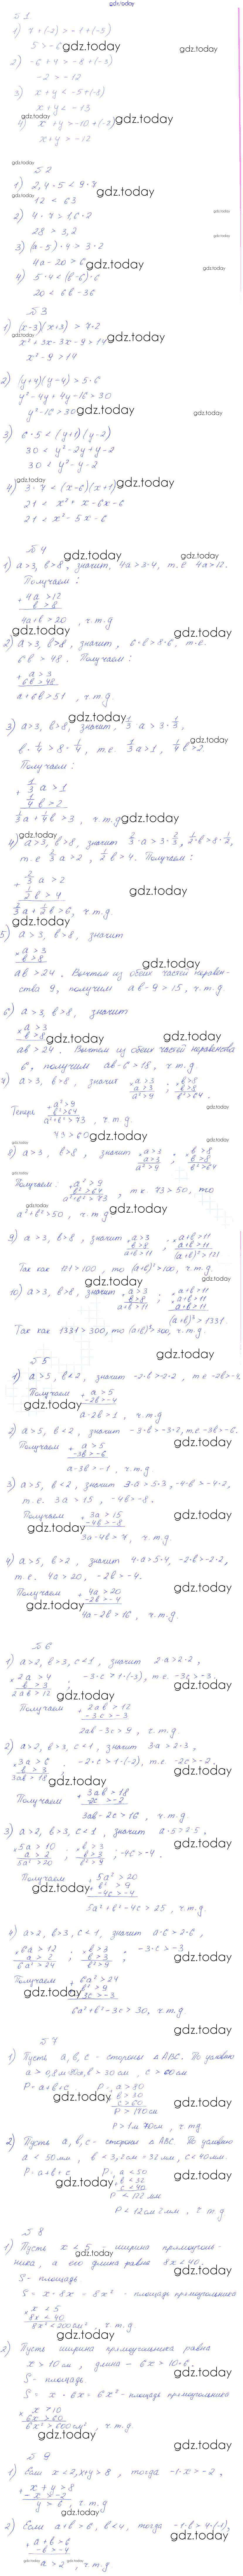 gdz.today
№1
1) 7 + (-2) > -1 + (-3)
5 > -
2) -6 + 4 > -8 + (-3)
-2 > -12
3) x + y < -5 + (-8)
x + y < -13
4) x + y > -10 + (-2)
x + y > -12
№2
1) 2,4 · 5 < 9 · 7
12 < 63
2) 4 · 7 > 1,6 · 2
28 > 3,2
3) (a - 5) · 4 > 3 · 2
4a - 20 > 6
4) 5 · 4 < (b - 6) · 6
20 < 6b - 36
№3
1) (x-3)(x+3) > 7 · 2
x² + 3x - 3x - 9 > 14
x² - 9 > 14
2) (y+4)(y-4) > 5 · 6
y² - 4y + 4y - 16 > 30
y² - 16 > 30
3) 6 · 5 < (y+1)(y-2)
30 < y² - 2y + y - 2
30 < y² - y - 2
4) 3 · 7 < (x-6)(x+1)
21 < x² + x - 6x - 6
21 < x² - 5x - 6
№4
1) a > 3, b > 8, значит, 4a > 3 · 4, т.е 4a > 12.
Получаем:
+ 4a > 12
b > 8
4a + b > 20, ч.т.д
2) a > 3, b > 8, значит, 6 · b > 8 · 6, т.е.
6b > 48. Получаем:
+ a > 3
6b > 48
a + 6b > 51, ч.т.д.
3) a > 3, b > 8, значит, 1/3 a > 3 · 1/3,
b · 1/4 > 8 · 1/4, т.е. 1/3 a > 1, 1/4 b > 2.
Получаем:
+ 1/3 a > 1
1/4 b > 2
1/3 a + 1/4 b > 3, ч.т.д
4) a > 3, b > 8, значит 2/3 · a > 3 · 2/3, 1/2 · b > 8 · 1/2,
т.е 2/3 a > 2, 1/2 b > 4. Получаем:
+ 2/3 a > 2
1/2 b > 4
2/3 a + 1/2 b > 6, ч.т.д
5) a > 3, b > 8, значит
× a > 3
b > 8
ab > 24. Вычтем из обеих частей неравен-
ства 9, получим ab - 9 > 15, ч.т.д
6) a > 3, b > 8, значит
× a > 3
b > 8
ab > 24. Вычтем из обеих частей неравенства
6, получим ab - 6 > 18, ч.т.д
7) a > 3, b > 8, значит × a > 3 ; × b > 8
a > 3 b > 8
a² > 9 b² > 64.
Теперь + a² > 9
b² > 64
a² + b² > 73, ч.т.д.
8) a > 3, b > 8, значит × a > 3 ; × b > 8
a > 3 b > 8
a² > 9 b² > 64
Получаем: + a² > 9
b² > 64
a² + b² > 73, т.к 73 > 50, то
a² + b² > 50, ч.т.д
9) a > 3, b > 8, значит + a > 3 ; × a+b > 11
b > 8 a+b > 11
a+b > 11 (a+b)² > 121
Так как 121 > 100, то (a+b)² > 100, ч.т.д.
10) a > 3, b > 8, значит + a > 3 ; × a+b > 11
b > 8 × a+b > 11
a+b > 11 a+b > 11
(a+b)³ > 1331.
Так как 1331 > 300, то (a+b)³ > 300, ч.т.д.
№5
1) a > 5, b < 2, значит -2 · b > 2 · -2, т.е -2b > -4.
Получаем + a > 5
-2b > -4
a - 2b > 1, ч.т.д
2) a > 5, b < 2, значит -3 · b > -3 · 2, т.е -3b > -6.
Получаем + a > 5
-3b > -6
a - 3b > -1, ч.т.д
3) a > 5, b < 2, значит 3 · a > 5 · 3, -4 · b > -4 · 2,
т.е. 3a > 15, -4b > -8.
Получаем + 3a > 15
-4b > -8
3a - 4b > 7, ч.т.д.
4) a > 5, b > 2, значит 4 · a > 5 · 4, -2 · b > -2 · 2,
т.е. 4a > 20, -2b > -4.
Получаем + 4a > 20
-2b > -4
4a - 2b > 16, ч.т.д.
№6
1) a > 2, b > 3, c < 1, значит 2 · a > 2 · 2,
× 2a > 4 ; -3 · c > 1 · (-3), т.е. -3c > -3.
b > 3
2ab > 12
Получаем + 2ab > 12
-3c > -3
2ab - 3c > 9, ч.т.д.
2) a > 2, b > 3, c < 1, значит 3a > 2 · 3,
× 3a > 6 ; -2 · c > 1 · (-2), т.е. -2c > -2.
b > 3
3ab > 18
Получаем + 3ab > 18
-2c > -2
3ab - 2c > 16, ч.т.д.
3) a > 2, b > 3, c < 1, значит a · 5 > 2 · 5,
× 5a > 10 ; × b > 3 ; -4c > -4.
a > 2 b > 3
5a² > 20 b² > 9
Получаем + 5a² > 20
b² > 9
-4c > -4
5a² + b² - 4c > 25, ч.т.д.
4) a > 2, b > 3, c < 1, значит a · 6 > 2 · 6,
× 6a > 12 ; × b > 3 ; -3 · c > -3
a > 2 b > 3
6a² > 24 b² > 9
Получаем + 6a² > 24
b² > 9
-3c > -3
6a² + b² - 3c > 30, ч.т.д.
№7
1) Пусть a, b, c - стороны △ABC. По условию
b > 30 см, c > 60 см
P = a + b + c P: a > 80
b > 30
c > 60
P > 170 см
P > 1м 70см, ч.т.д
2) Пусть a, b, c - стороны △ABC. По условию
a < 50 мм, b < 3,2 см = 32 мм, c < 40 мм.
P = a + b + c P: a < 50
b < 32
c < 40
P < 122 мм
P < 12 см 2 мм, ч.т.д
№8
1) Пусть x < 5 - ширина прямоуголь-
ника, а его длина равна 8x < 40.
S - площадь
S = x · 8x = 8x² - площадь прямоугольника
× x < 5
8x < 40
8x² < 200 см², ч.т.д
2) Пусть ширина прямоугольника равна
x > 10 см, длина - 6x > 10 · 6.
S - площадь
S = x · 6x = 6x² - площадь прямоугольника
× x > 10
6x > 60
6x² > 600 см², ч.т.д.
№9
1) Если x < 2, x + y > 8, тогда -1 · x > -2,
+ x + y > 8
-x > -2
y > 6, ч.т.д
2) Если a + b > 6, b < 4, тогда -1 · b > 4 · (-1),
+ a + b > 6
-b > -4
a > 2, ч.т.д